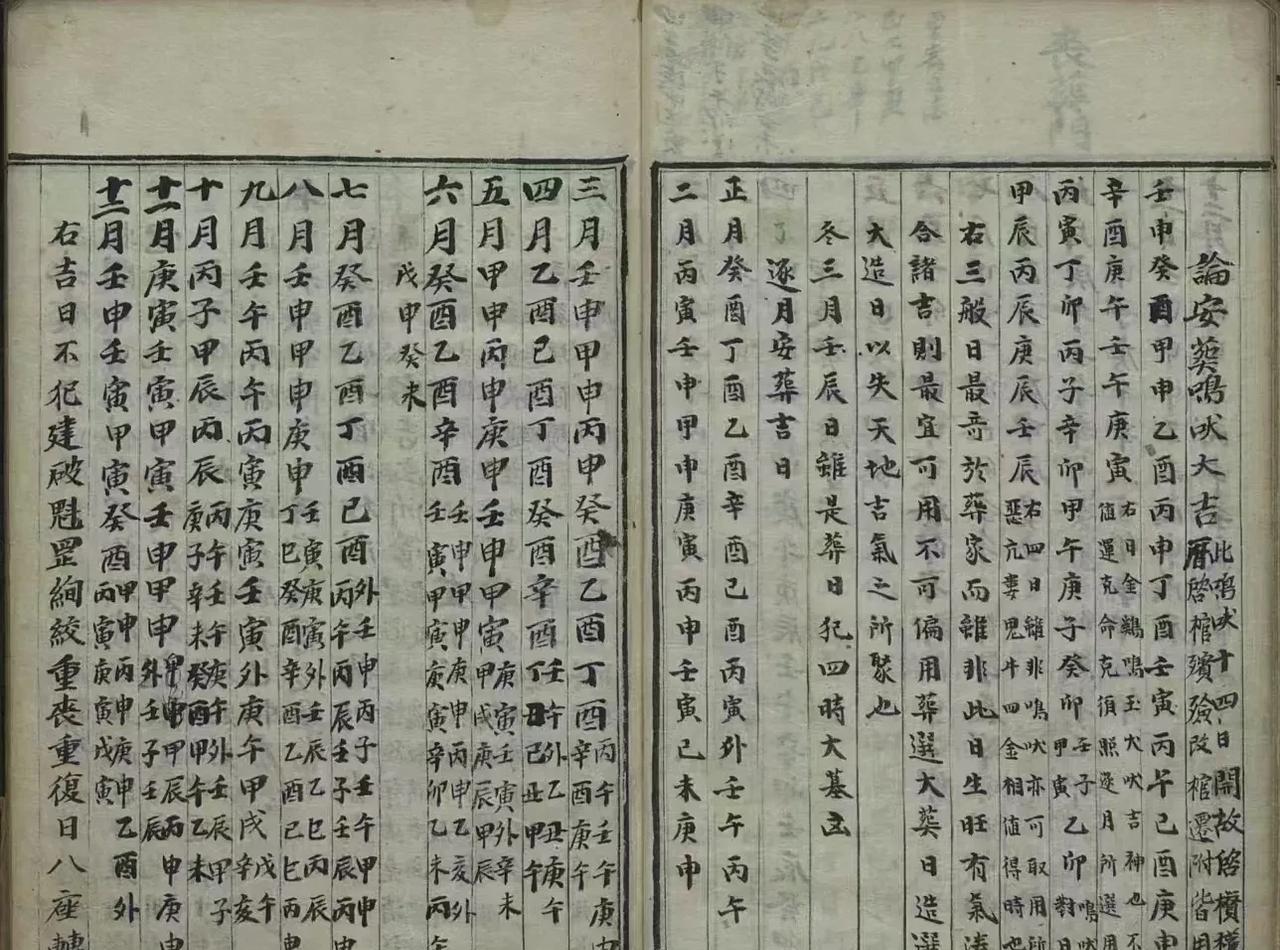 論安葬鳴吠大吉曆此鳴吠十四日開故啓欑
啓棺殯殮改棺遷附皆用
壬申癸酉甲申乙酉丙申丁酉壬寅丙午己酉庚申
辛酉庚午壬午庚寅右日金鷄鳴玉犬吠吉神也不
值運克命克須照逐月所選用
丙寅丁卯丙子辛卯甲午庚子癸卯壬子甲寅乙卯鳴吠對
甲辰丙辰庚辰壬辰右四日雖非鳴吠亦可取用所
惡亢婁鬼牛四金相值得時也
右三般日最竒於葬家而雖非此日生旺有氣湊
合諸吉則最宜可用不可偏用葬選大葬日造選
大造日以失天地吉氣之所聚也
冬三月壬辰日雖是葬日犯四時大墓凶
逐月安葬吉日
正月癸酉丁酉乙酉辛酉己酉丙寅外壬午丙午
二月丙寅壬申甲申庚寅丙申壬寅己未庚申
三月壬申甲申丙申癸酉乙酉丁酉丙午壬午庚
辛酉庚午庚申
四月乙酉己酉丁酉癸酉辛酉壬午外乙丑庚午
丁丑己丑甲午
五月甲申丙申庚申壬申甲寅庚寅壬寅外辛未
甲戌庚辰甲辰
六月癸酉乙酉辛酉壬申甲申庚申丙申乙亥外
壬寅甲寅庚寅辛卯乙未丙午
戊申癸未
七月癸酉乙酉丁酉己酉外壬申丙子壬午甲申
丙午丙辰壬子壬辰丙申
八月壬申甲申庚申壬寅庚寅外壬辰乙巳丙辰
丁巳癸酉辛酉乙酉己巳丙申
九月壬午丙午丙寅庚寅壬寅外庚午甲戌戊午
辛亥
十月丙子甲辰丙辰丙午壬午庚午外壬辰甲子
庚子辛未癸酉甲午乙未
十一月庚寅壬寅甲寅壬申甲申甲辰丙申庚申
外壬子壬辰
十二月壬申壬寅甲寅癸酉甲申丙申庚申乙酉外
丙寅庚寅戊寅
右吉日不犯建破魁罡絢絞重喪重復日八座轉